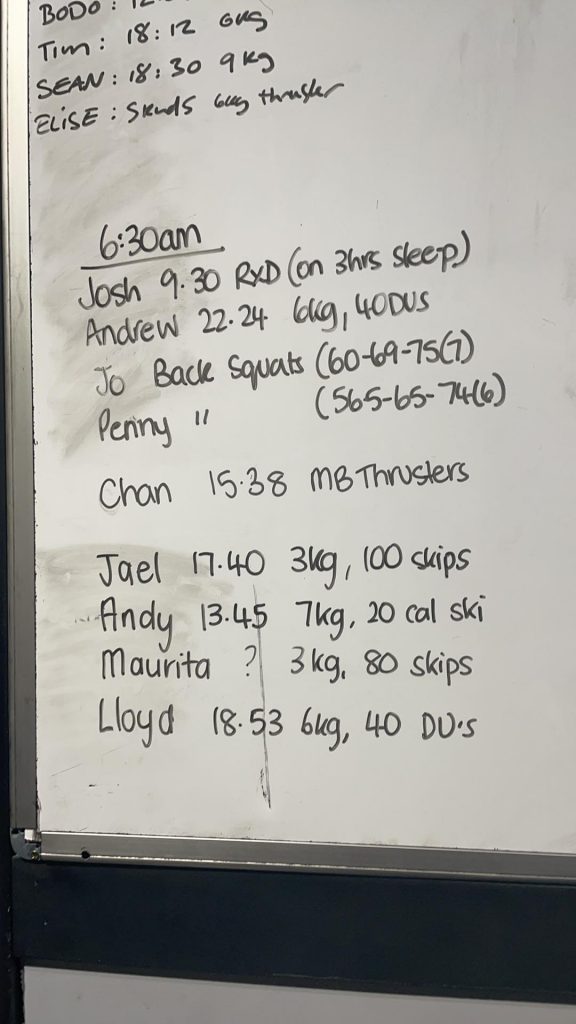 BODO : 12
Tim : 18:12 6kg
SEAN : 18:30 9kg
ELISE : 6kg thruster
6:30am
Josh 9.30 RxD (on 3hrs sleep)
Andrew 22.24 6kg, 40DUS
Jo Back Squats (60-69-75(7)
Penny " (565-65-74(6)
Chan 15.38 MB Thrusters
Jael 17.40 3kg, 100 skips
Andy 13.45 7kg, 20 cal ski
Maurita ? 3kg, 80 skips
Lloyd 18.53 6kg, 40 DU's